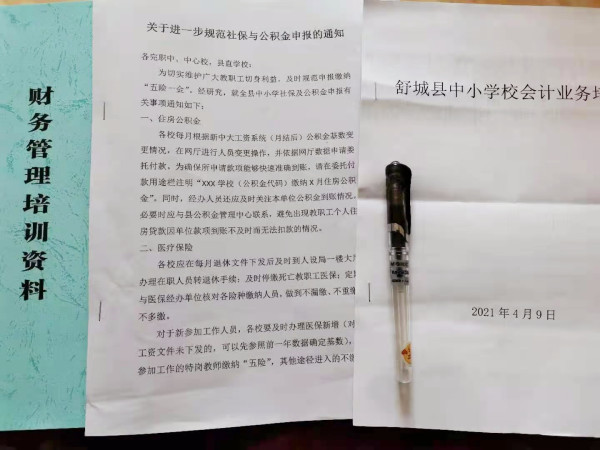 财务管理培训资料
关于进一步规范社保与公积金申报的通知
各完职中、中心校、县直学校:
为切实维护广大教职工切身利益,及时规范申报缴纳
“五险一金”,经研究,就全县中小学社保及公积金申报有
关事项通知如下:
一、住房公积金
各校每月根据新中大工资系统(月结后)公积金基数变
更情况,在网厅进行人员变更操作,并依据网厅数据申请委
托付款,为确保所申请款项能够快速准确到账,请在委托付
款用途栏注明“XXX学校(公积金代码)缴纳X月住房公积
金”。同时,经办人员还应及时关注本单位公积金到账情况,
必要时应与县公积金管理中心联系,避免出现教职工个人住
房贷款因单位款项到账不及时而无法扣款的情况。
二、医疗保险
各校应在每月退休文件下发后及时到人设局一楼大
办理在职人员转退休手续;及时停缴死亡教职工医保;定
与医保经办单位核对各险种缴纳人员,做到不漏缴、不重
不多缴。
对于新参加工作人员,各校要及时办理医保新增(对
工资文件未下发的,可以先参照前一年数据确定基数),
参加工作的特岗教师缴纳“五险”,其他途径进入的不
舒城县中小学校会计业务培
2021年4月9日